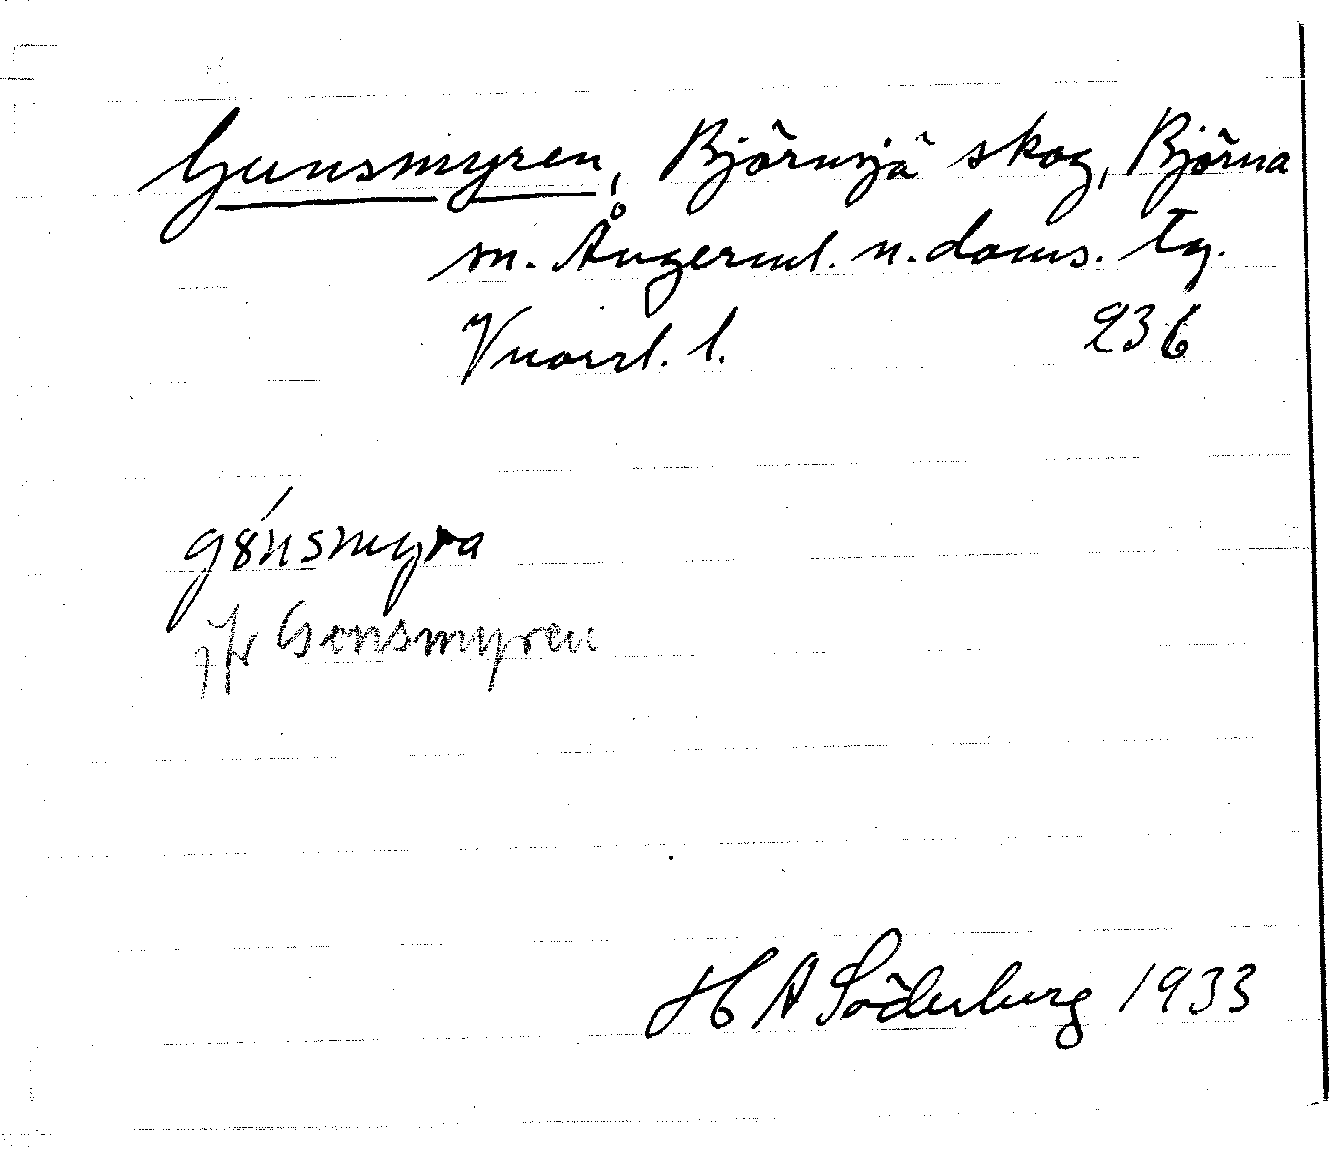 Gunsmyren, Björnsjö skog, Björna
sn. Ångerml. n. doms. Tg.
Vnorrl. l. 236
gȣ́nsmyra
jfr Gensmyren
H A Söderberg 1933